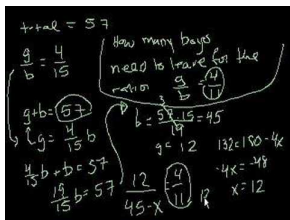 total = 57
g/b = 4/15
How many boys
need to leave for the
ratio g/b = 4/11
g+b = 57
g = 4/15 b
4/15 b + b = 57
19/15 b = 57
b = 57·15/19 = 45
g = 12
12/(45-x) = 4/11
132 = 180 - 4x
-4x = -48
x = 12
12